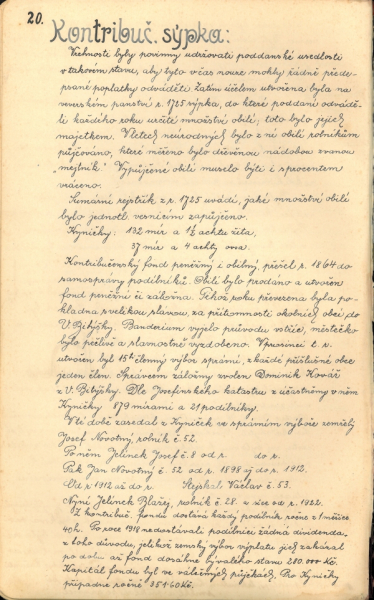 20.
Kontribuč. sýpka:
Vrchnosti byly povinny udržovati poddanské usedlosti
v takovém stavu, aby byla v čas nouze mohly řádně přede-
psané poplatky odváděti. Za tím účelem utvořena byla na
veverském panství r. 1725 sýpka, do které poddaní odvádě-
li každého roku určité množství obilí, toto bylo jejich
majetkem. V letech neúrodných bylo z ní obilí rolníkům
půjčováno, které měřeno bylo dřevěnou nádobou zvanou
„mejlník". Vypůjčené obilí muselo býti i s procentem
vráceno.
Sumární rejstřík z r. 1725 uvádí, jaké množství obilí
bylo jednotl. vesnicím zapůjčeno.
Kyničky: 132 mír a 1½ achtu žita,
37 mír a 4 achty ovsa.
Kontribučenský fond peněžný i obilný, přešel r. 1864 do
samosprávy podílníků. Obilí bylo prodáno a utvořen
fond peněžní či záložna. Téhož roku převezena byla po-
kladna s velikou slávou, za přítomnosti okolních obcí do
V. Bitýšky. Banderium vyjelo průvodu vstříc, městečko
bylo pečlivě a slavnostně vyzdobeno. V prosinci t. r.
utvořen byl 15ti členný výbor správní, z každé příslušné obce
jeden člen. Správcem záložny zvolen Dominik Kovář
z V. Bitýšky. Dle Josefinského katastru z účastněny v něm
Kyničky 879 mírami a 21 podílníky.
V té době zasedal z Kyniček ve správním výboře zemřelý
Josef Novotný, rolník č. 52.
Po něm Jelínek Josef č. 8 od r. do r.
Pak Jan Novotný č. 52 od r. 1898 až do r. 1912.
Od r. 1912 až do r. Stejskal Václav č. 53.
Nyní Jelínek Blažej, rolník č. 28. a sice od r. 1922.
Z kontribuč. fondu dostává každý podílník ročně z 1 měřice
40 h. Po roce 1918 nedostávali podílníci žádná dividenda,
z toho důvodu, jelikož zemský výbor výplatu jich zakázal
po dobu až fond dosáhne bývalého stavu 280.000 Kč.
Kapitál fondu byl ve válečných půjčkách. Pro Kyničky
připadne ročně 351·60 Kč.